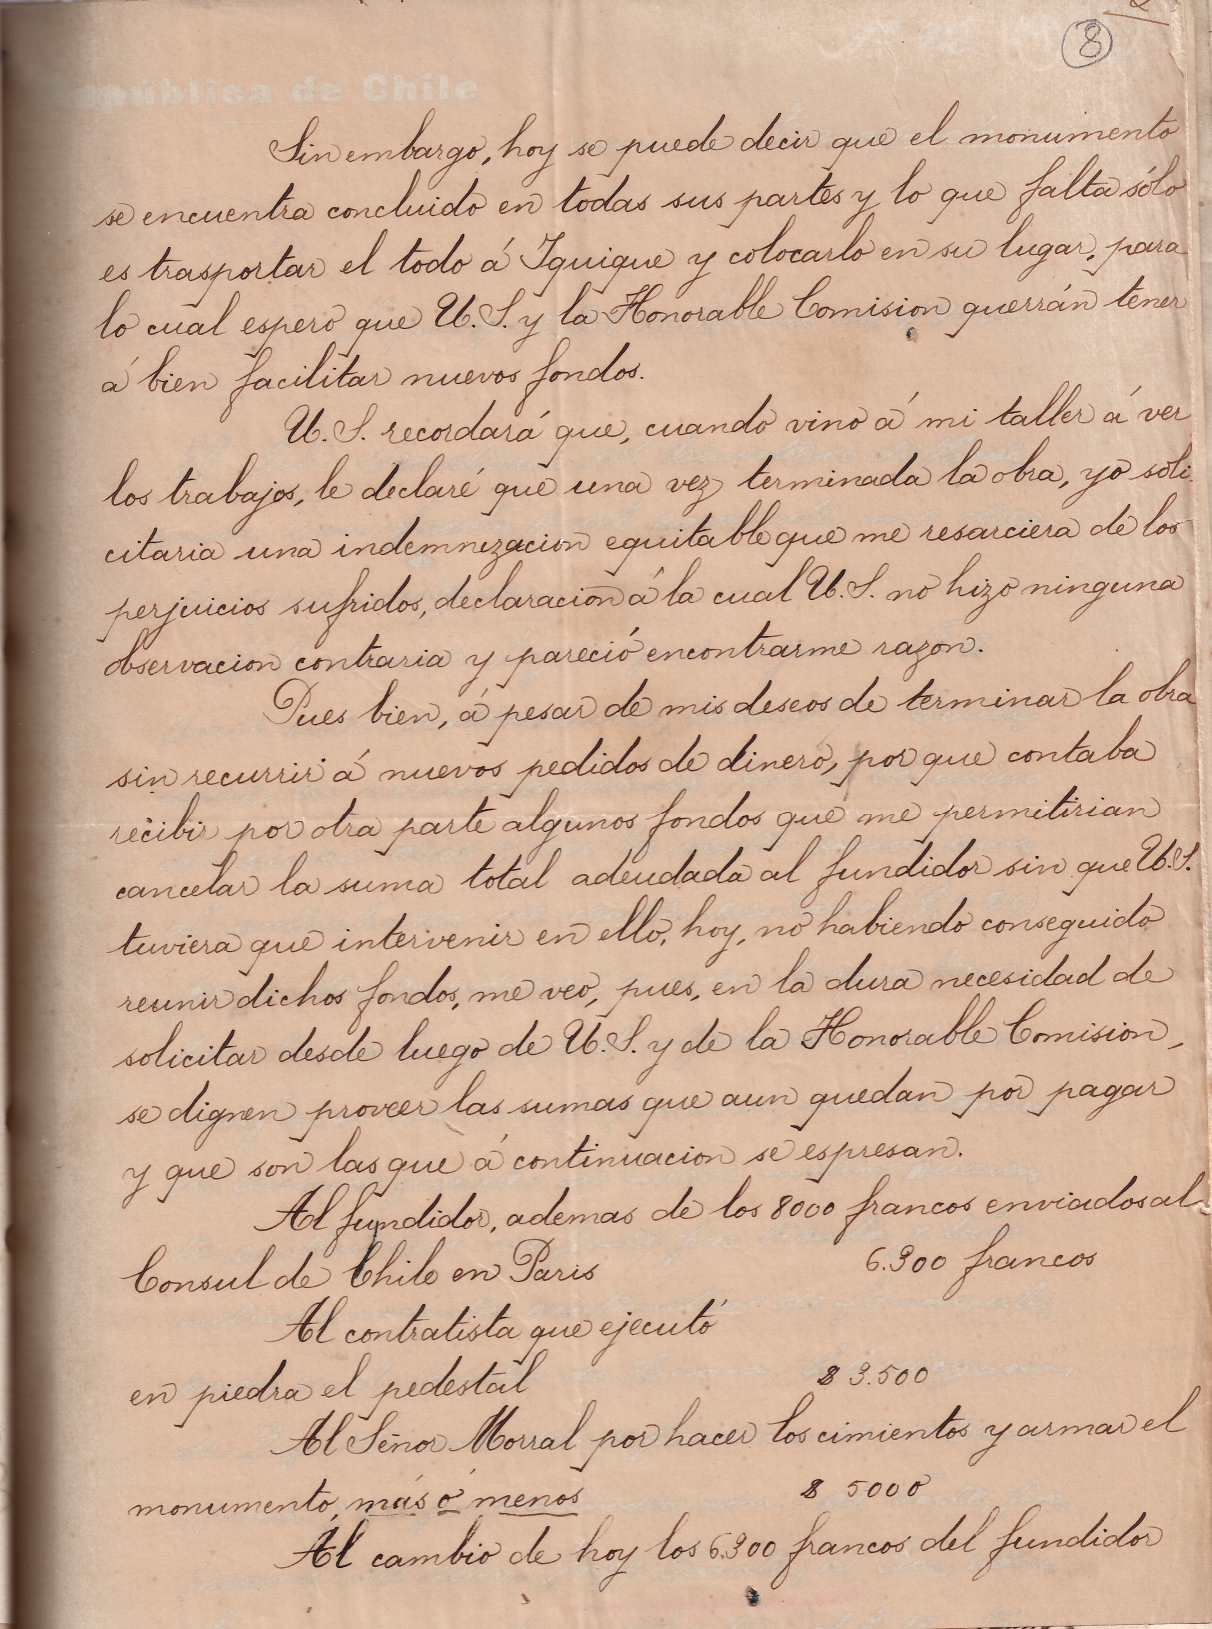 2
8
República de Chile
Sin embargo, hoy se puede decir que el monumento
se encuentra concluido en todas sus partes y lo que falta sólo
es trasportar el todo á Iquique y colocarlo en su lugar, para
lo cual espero que U.S. y la Honorable Comision querrán tener
á bien facilitar nuevos fondos.
U.S. recordará que, cuando vino á mi taller á ver
los trabajos, le declaré que una vez terminada la obra, yo soli-
citaria una indemnizacion equitable que me resarciera de los
perjuicios sufridos, declaracion á la cual U.S. no hizo ninguna
observacion contraria y pareció encontrarme razon.
Pues bien, á pesar de mis deseos de terminar la obra
sin recurrir á nuevos pedidos de dinero, por que contaba
recibir por otra parte algunos fondos que me permitirian
cancelar la suma total adeudada al fundidor sin que U.S.
tuviera que intervenir en ello, hoy, no habiendo conseguido
reunir dichos fondos, me veo, pues, en la dura necesidad de
solicitar desde luego de U.S. y de la Honorable Comision,
se dignen proveer las sumas que aun quedan por pagar
y que son las que á continuacion se espresan.
Al fundidor, ademas de los 8000 francos enviados al
Consul de Chile en Paris 6.300 francos
Al contratista que ejecutó
en piedra el pedestal $ 3.500
Al Señor Morral por hacer los cimientos y armar el
monumento, más ó menos $ 5000
Al cambio de hoy los 6.300 francos del fundidor